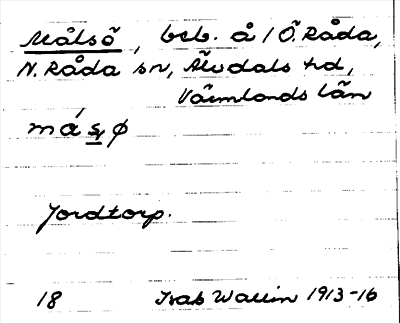 Målsö, beb. å / Ö. Råda,
N. Råda sn, Älvdals hd,
Värmlands län
måsø
Jordtorp.
18 Isab Wallin 1913-16